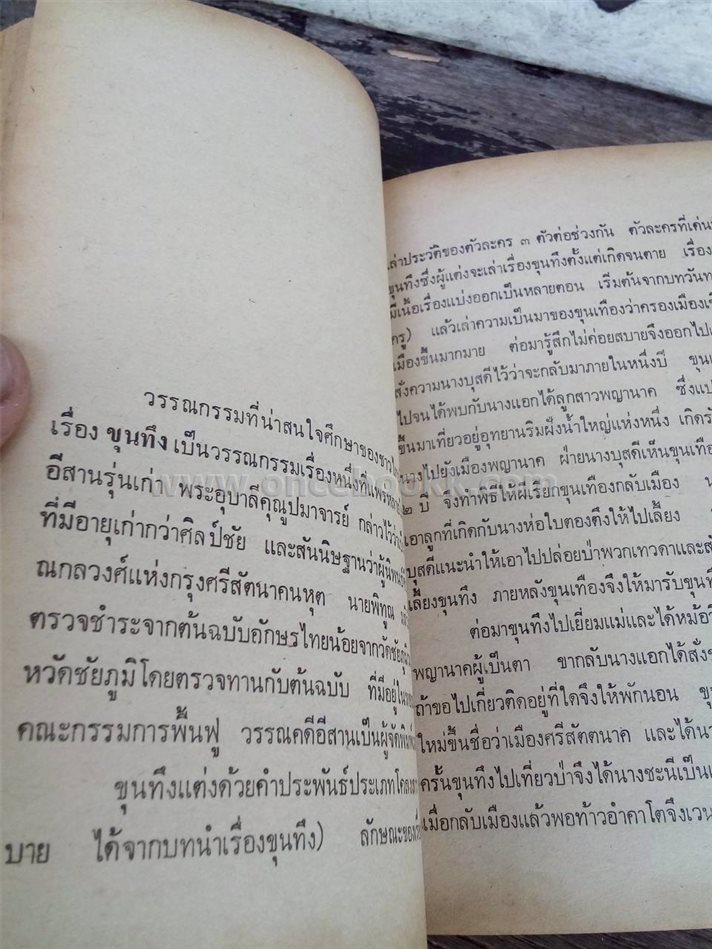 วรรณกรรมที่น่าสนใจศึกษาของชาว
เรื่อง ขุนทึง เป็นวรรณกรรมเรื่องหนึ่งที่แพร่หลาย
อีสานรุ่นเก่า พระอุบาลีคุณูปมาจารย์ กล่าวไว้ว่า
ที่มีอายุเก่ากว่าศิลป์ชัย และสันนิษฐานว่าผู้นิพนธ์
ณกลวงศ์แห่งกรุงศรีสัตนาคนหุต นายพิทูณ
ตรวจชำระจากต้นฉบับอักษรไทยน้อยจากวัดชัย
หวัดชัยภูมิโดยตรวจทานกับต้นฉบับ ที่มีอยู่ใน
คณะกรรมการฟื้นฟู วรรณคดีอีสานเป็นผู้จัดพิมพ์
ขุนทึงแต่งด้วยคำประพันธ์ประเภทโคลง
บาย ได้จากบทนำเรื่องขุนทึง) ลักษณะของ
เล่าประวัติของตัวละคร ๓ ตัวต่อช่วงกัน ตัวละครที่เด่น
ขุนทึงซึ่งผู้แต่งจะเล่าเรื่องขุนทึงตั้งแต่เกิดจนตาย เรื่อง
มีเนื้อเรื่องแบ่งออกเป็นหลายตอน เริ่มต้นจากบทวันท
ครู) แล้วเล่าความเป็นมาของขุนเทืองว่าครองเมือง
เมืองขึ้นมากมาย ต่อมารู้สึกไม่ค่อยสบายจึงออกไป
สั่งความนางบุสดีไว้ว่าจะกลับมาภายในหนึ่งปี ขุน
ไปจนได้พบกับนางแอกไค้ลูกสาวพญานาค ซึ่งแป
ขึ้นมาเที่ยวอยู่อุทยานริมฝั่งน้ำใหญ่แห่งหนึ่ง เกิดรั
นางไปยังเมืองพญานาค ฝ่ายนางบุสดีเห็นขุนเทือ
๒ ปี จึงทำพิธีให้ผีเรียกขุนเทืองกลับเมือง
เอาลูกที่เกิดกับนางห่อใบตองตึงให้ไปเลี้ยง
บุสดีแนะนำให้เอาไปปล่อยป่าพวกเทวดาและสั
เลี้ยงขุนทึง ภายหลังขุนเทืองจึงให้มารับขุนทึ
ต่อมาขุนทึงไปเยี่ยมแม่และได้หม้อวิ
พญานาคผู้เป็นตา ขากลับนางแอกได้สั่ง
ถ้าขอไปเกี่ยวติดอยู่ที่ใดจึงให้พักนอน ขุ
ใหม่ขึ้นชื่อว่าเมืองศรีสัตตนาค และได้น
ครั้นขุนทึงไปเที่ยวป่าจึงได้นางชะนีเป็น
เมื่อกลับเมืองแล้วพอท้าวอำคาโตจึงเวน